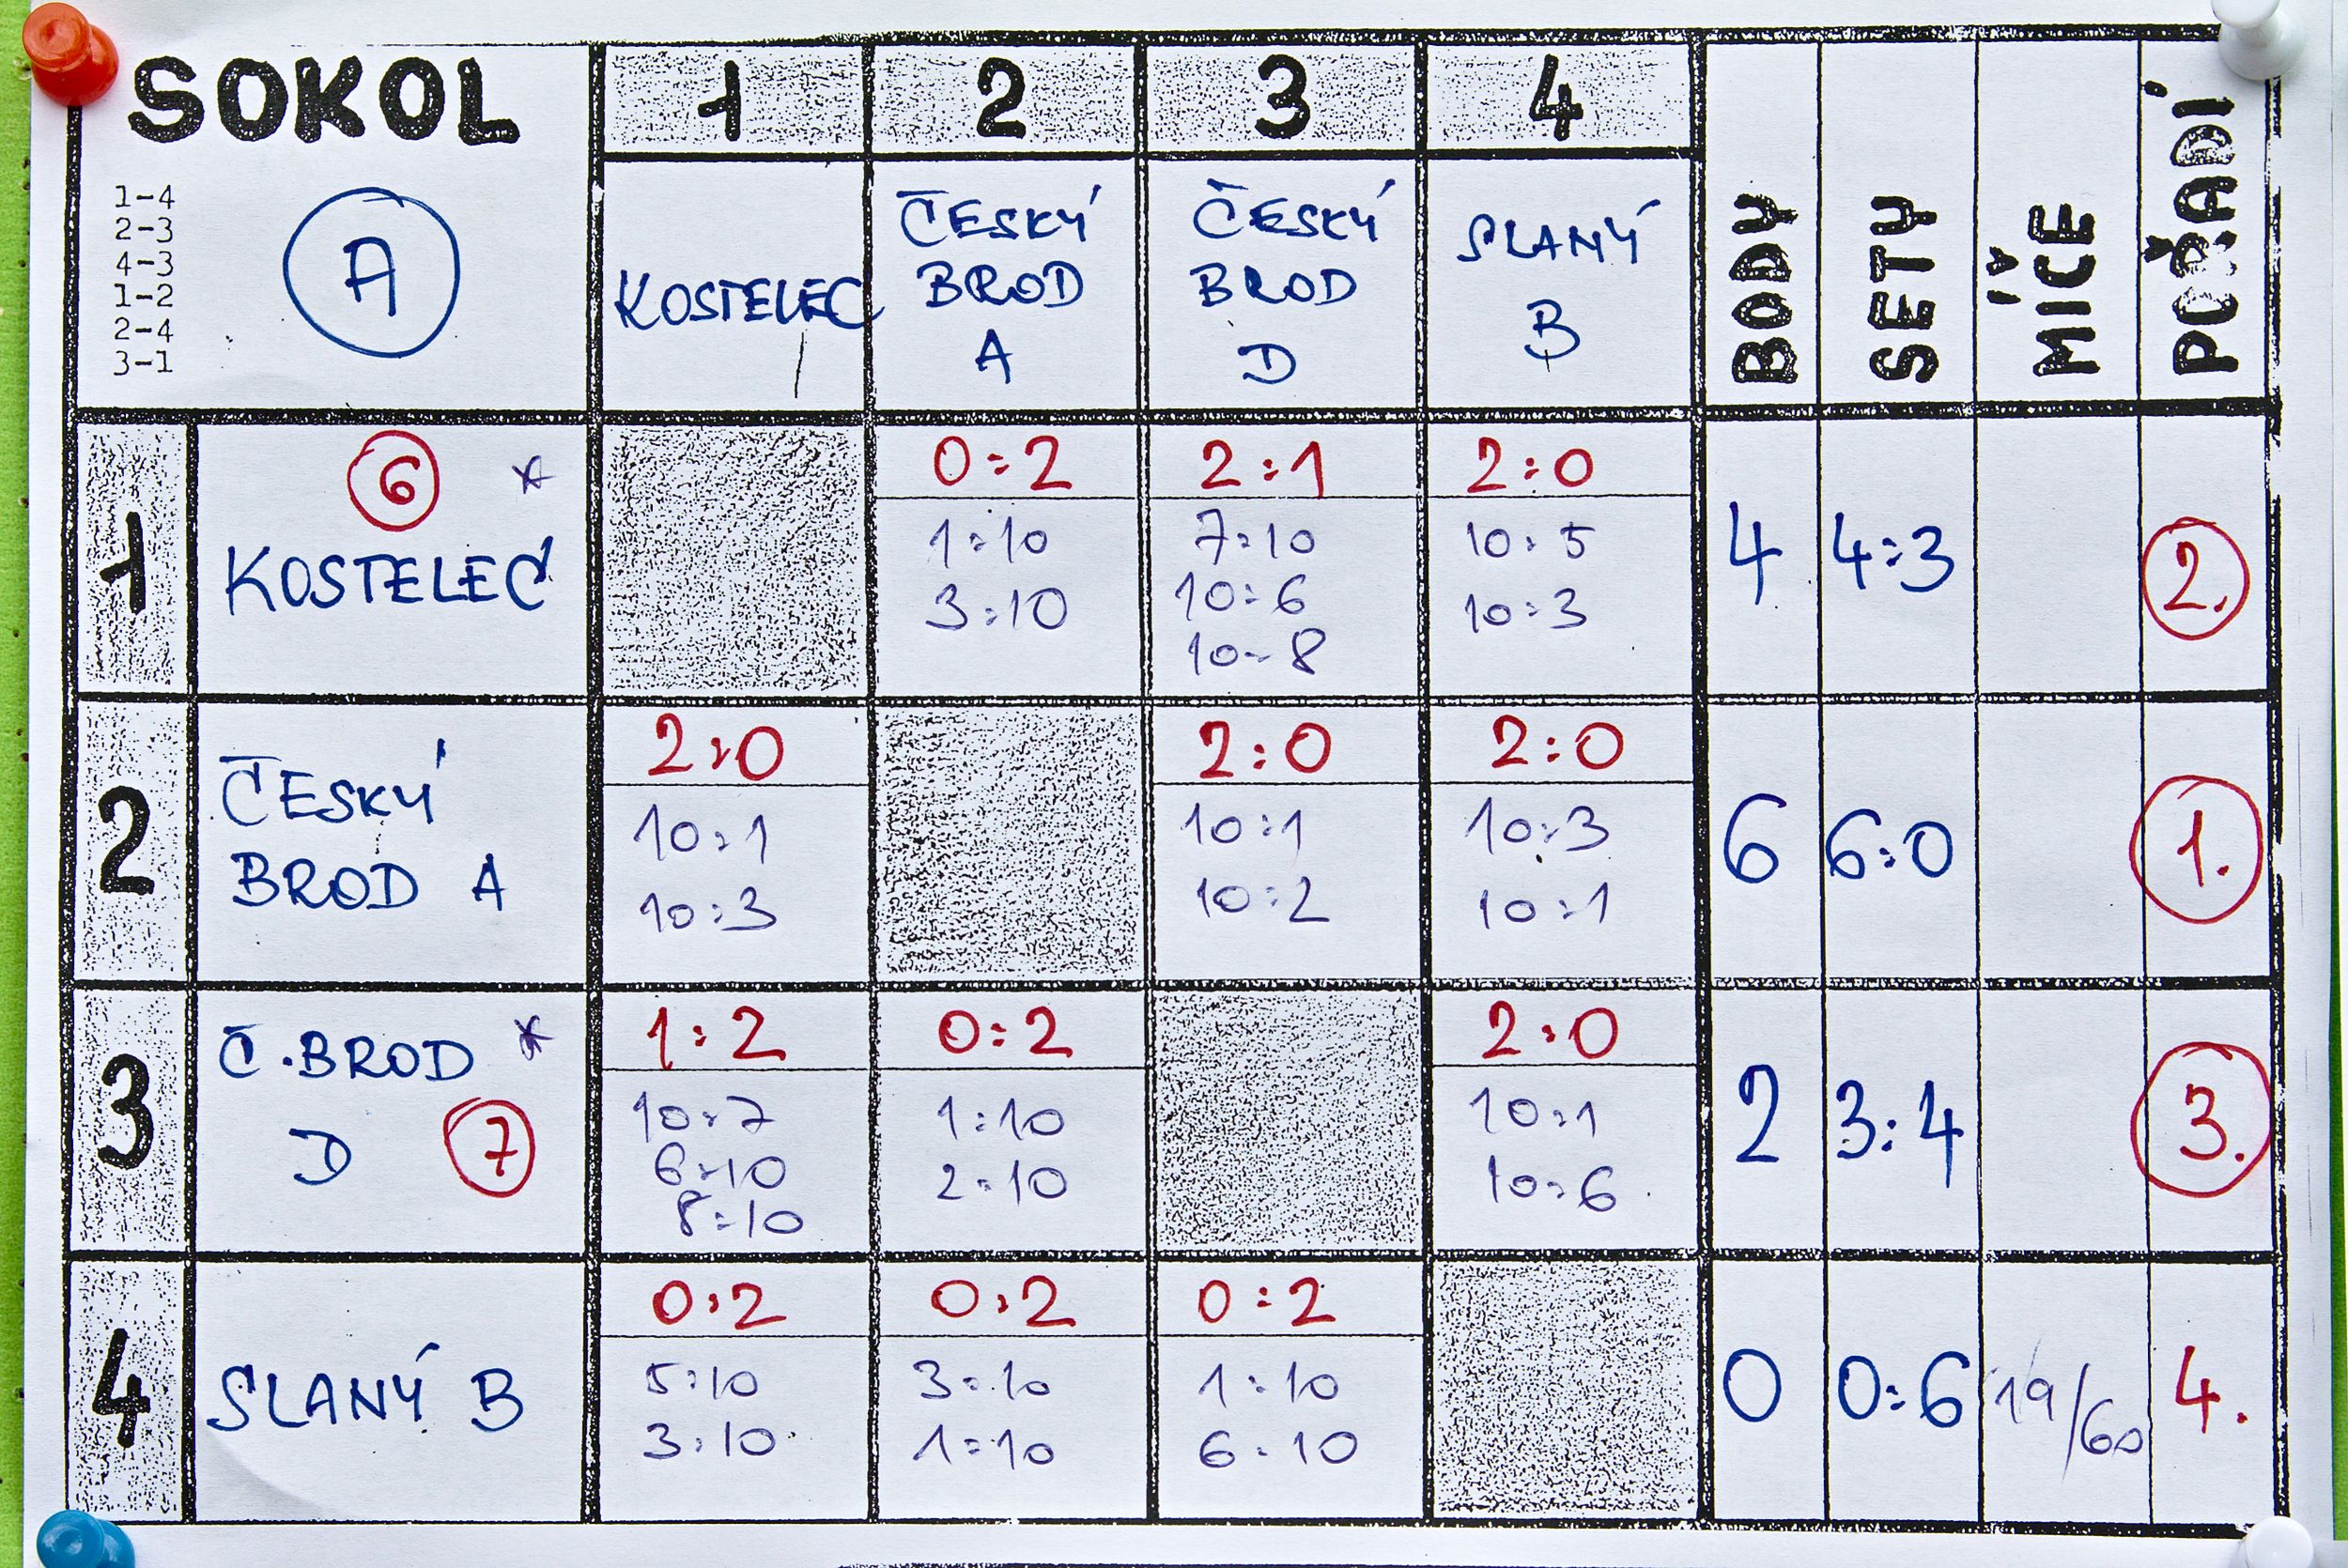 SOKOL
1 2 3 4
1-4
2-3
4-3
1-2
2-4
3-1
A
KOSTELEC
ČESKÝ
BROD
A
ČESKÝ
BROD
D
SLANÝ
B
BODY
SETY
MÍČE
POŘADÍ
1
6 *
KOSTELEC
0:2
1:10
3:10
2:1
7:10
10:6
10:8
2:0
10:5
10:3
4
4:3
2.
2
ČESKÝ
BROD A
2:0
10:1
10:3
2:0
10:1
10:2
2:0
10:3
10:1
6
6:0
1.
3
Č.BROD *
D 7
1:2
10:7
6:10
8:10
0:2
1:10
2:10
2:0
10:1
10:6
2
3:4
3.
4
SLANÝ B
0:2
5:10
3:10
0:2
3:10
1:10
0:2
1:10
6:10
0
0:6
19/60
4.